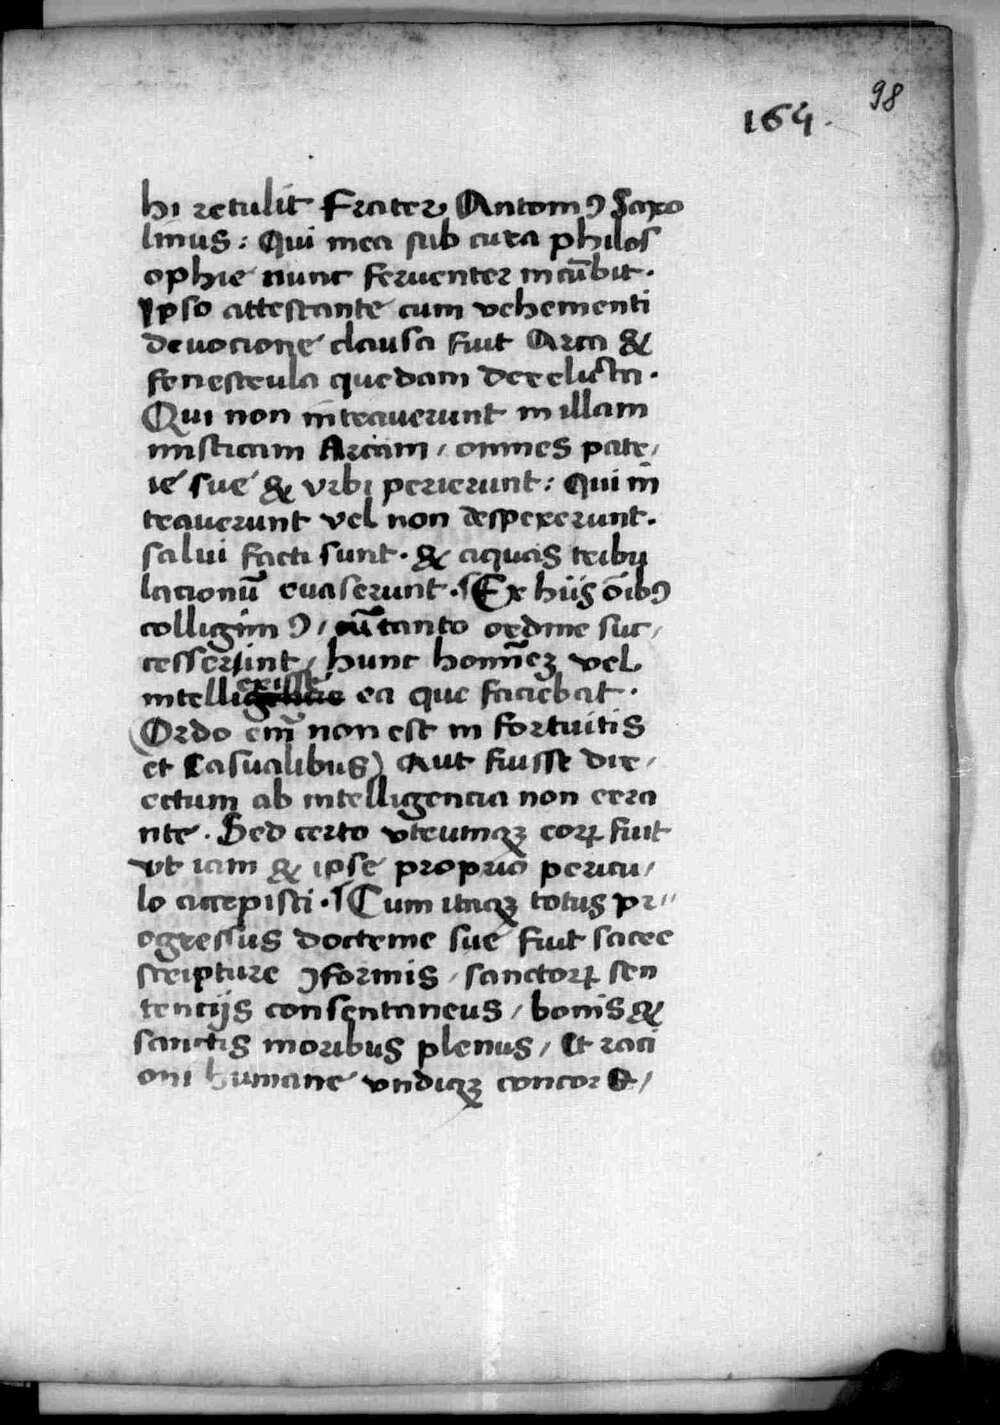 98
164.
hi retulit Frater Antoniꝯ Saxo
linus: Qui mea sub cura philos
ophie nunc feruenter incūbit.
Ipso attestante cum vehementi
deuocione clausa fuit Arca &
fenestrula quedam derelicta.
Qui non intrauerunt in illam
misticam Arcam / omnes patr/
ie sue & vrbi perierunt: Qui in
trauerunt vel non despexerunt.
salui facti sunt. & aquas tribu
lacionū euaserunt. Ex hijs oībꝯ
colligimꝯ / cū tanto ordine suc/
cesserint / hunc hominēꝫ vel
intellexisse ea que faciebat.
(Ordo enī non est in fortuitis
et Casualibus) Aut fuisse dir/
ectum ab intelligencia non erra
nte. Sed certo vtrumqꝫ eorꝝ fuit
vt iam & ipse proprio pericu/
lo accepisti. Cum itaqꝫ totus pr
ogressus doctrine sue fuit sacre
scripture ꝯformis / sanctorꝝ sen
tencijs consentaneus / bonis &
sanctis moribus plenus / Et raci
oni humane vndiqꝫ concor